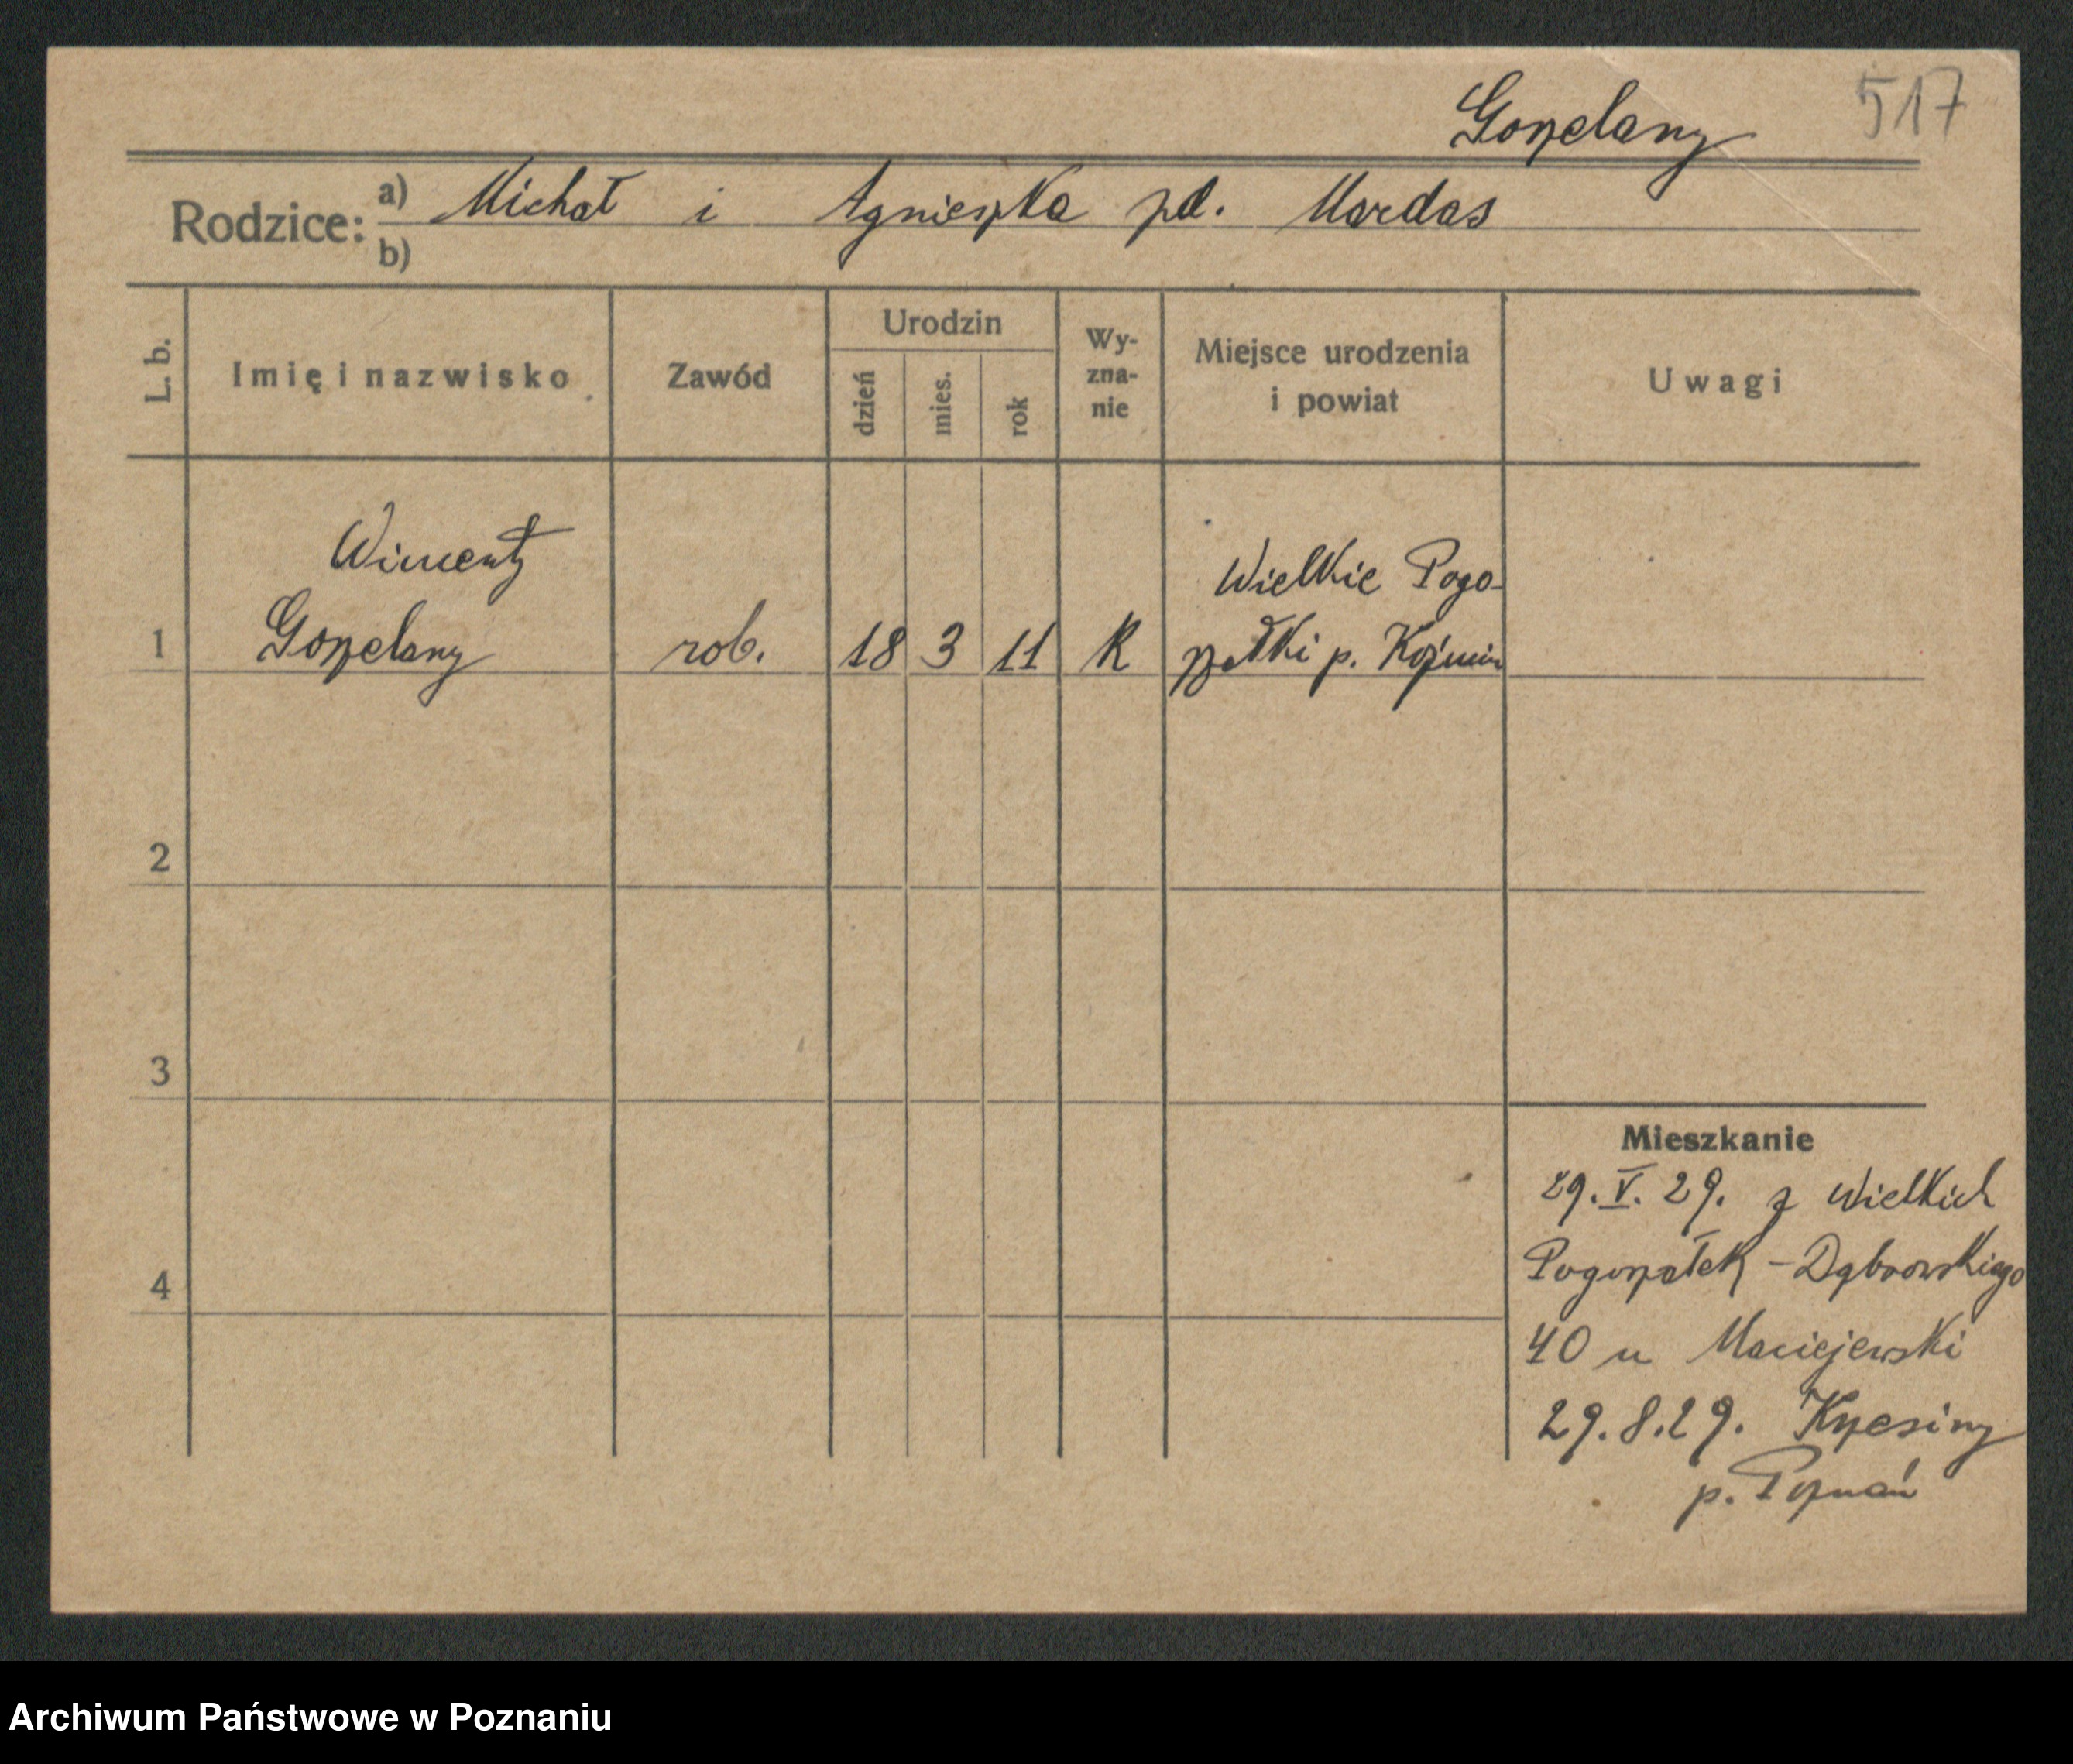 Gorzelany 517
Rodzice: a) Michał i Agnieszka zd. Mardas
b)
L. b. Imię i nazwisko Zawód Urodzin dzień mies. rok Wy-zna-nie Miejsce urodzenia i powiat Uwagi
Wincenty Wielkie Pogo-
1 Gorzelany rob. 18 3 11 R rzałki p. Koźmin
2
3
Mieszkanie
29. V. 29. z Wielkich
4 Pogorzałek - Dąbrowskiego
40 u Maciejewski
29.8.29. Krzesiny
p. Poznań
Archiwum Państwowe w Poznaniu